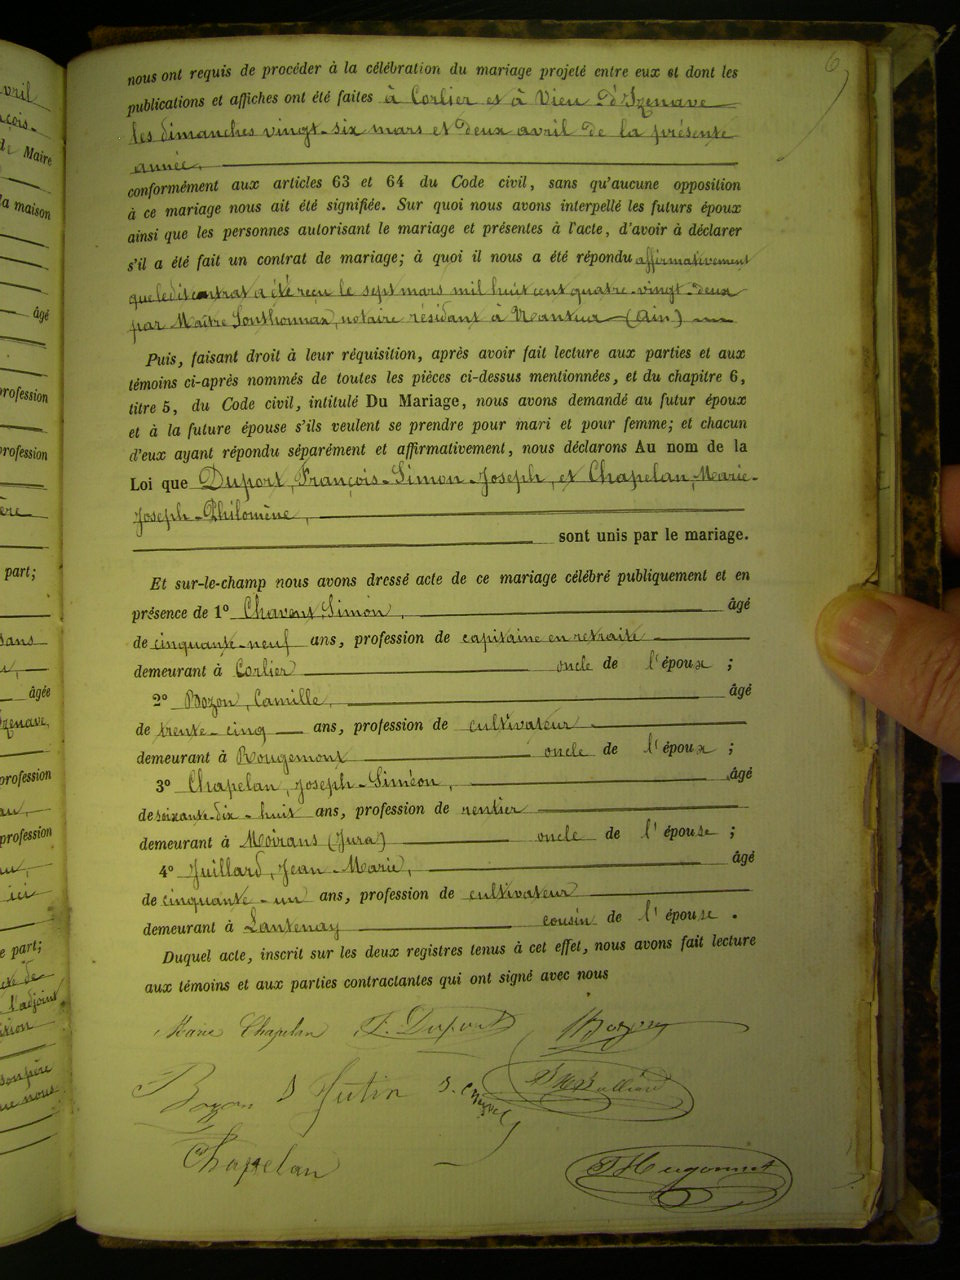 6
vril
çois.
Maire
la maison
âgé
profession
profession
part;
sans
âgée
Izenave,
profession
profession
ici
e part;
l'adjoint
nous ont requis de procéder à la célébration du mariage projeté entre eux et dont les
publications et affiches ont été faites à Corlier et à Vieu d'Izenave
les dimanches vingt-six mars et deux avril de la présente
année.
conformément aux articles 63 et 64 du Code civil, sans qu'aucune opposition
à ce mariage nous ait été signifiée. Sur quoi nous avons interpellé les futurs époux
ainsi que les personnes autorisant le mariage et présentes à l'acte, d'avoir à déclarer
s'il a été fait un contrat de mariage; à quoi il nous a été répondu affirmativement
que ledit contrat a été reçu le sept mars mil huit cent quatre-vingt-deux
par Maître Sonthonnax, notaire résidant à Nantua (Ain)
Puis, faisant droit à leur réquisition, après avoir fait lecture aux parties et aux
témoins ci-après nommés de toutes les pièces ci-dessus mentionnées, et du chapitre 6,
titre 5, du Code civil, intitulé Du Mariage, nous avons demandé au futur époux
et à la future épouse s'ils veulent se prendre pour mari et pour femme; et chacun
d'eux ayant répondu séparément et affirmativement, nous déclarons Au nom de la
Loi que Duport, François-Simon-Joseph, et Chapelan, Marie-
Joseph-Philomène,
sont unis par le mariage.
Et sur-le-champ nous avons dressé acte de ce mariage célébré publiquement et en
présence de 1° Chavent Simon, âgé
de cinquante-neuf ans, profession de capitaine en retraite
demeurant à Corlier oncle de l'époux ;
2° Bozon, Camille, âgé
de trente-cinq ans, profession de cultivateur
demeurant à Rougemont oncle de l'époux ;
3° Chapelan, Joseph-Siméon, âgé
de soixante-dix-huit ans, profession de rentier
demeurant à Moirans (Jura) oncle de l'épouse ;
4° Juillard, Jean-Marie, âgé
de cinquante-un ans, profession de cultivateur
demeurant à Lantenay cousin de l'épouse .
Duquel acte, inscrit sur les deux registres tenus à cet effet, nous avons fait lecture
aux témoins et aux parties contractantes qui ont signé avec nous
Marie Chapelan F. Duport
Bozon
Chapelan
Hugonnet